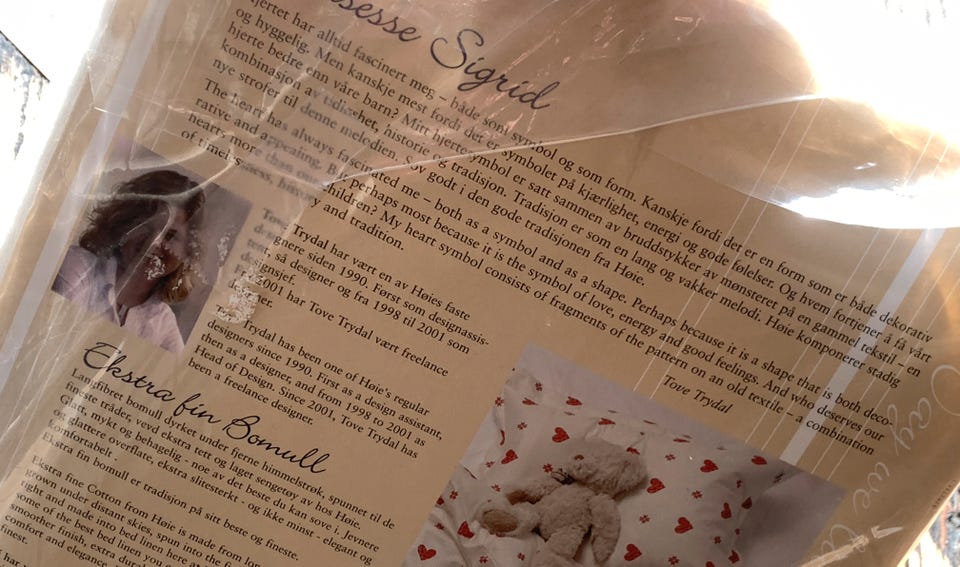 sesse Sigrid
hjertet har alltid fascinert meg – både som symbol og som form. Kanskje fordi det er en form som er både dekorativ
og hyggelig. Men kanskje mest fordi det er symbolet på kjærlighet, energi og gode følelser. Og hvem fortjener å få vårt
hjerte bedre enn våre barn? Mitt hjertesymbol er satt sammen av bruddstykker av mønsteret på en gammel tekstil – en
kombinasjon av tidløshet, historie og tradisjon. Tradisjon er som en lang og vakker melodi. Høie komponerer stadig
nye strofer til denne melodien. Sov godt i den gode tradisjonen fra Høie.
The heart has always fascinated me – both as a symbol and as a shape. Perhaps because it is a shape that is both deco-
rative and appealing. But perhaps most because it is the symbol of love, energy and good feelings. And who deserves our
hearts more than our children? My heart symbol consists of fragments of the pattern on an old textile – a combination
of timelessness, history and tradition.
Tove Trydal
Trydal har vært en av Høies faste
designere siden 1990. Først som designassis-
så designer og fra 1998 til 2001 som
designsjef.
2001 har Tove Trydal vært freelance
Trydal has been one of Høie's regular
designers since 1990. First as a design assistant,
then as a designer, and from 1998 to 2001 as
Head of Design. Since 2001, Tove Trydal has
been a freelance designer.
Ekstra fin Bomull
Langfibret bomull dyrket under fjerne himmelstrøk, spunnet til de
fineste tråder, vevd ekstra tett og laget sengetøy av hos Høie.
Glatt, mykt og behagelig - noe av det beste du kan sove i. Jevnere
og glattere overflate, ekstra slitesterkt - og ikke minst - elegant og
komfortabelt.
Ekstra fin bomull er tradisjon på sitt beste og fineste.
Ekstra fine Cotton from Høie is made from
grown under distant skies, spun into the
tight and made into bed linen here
some of the best bed linen you
comfort finish, extra
and elegance.
finest.